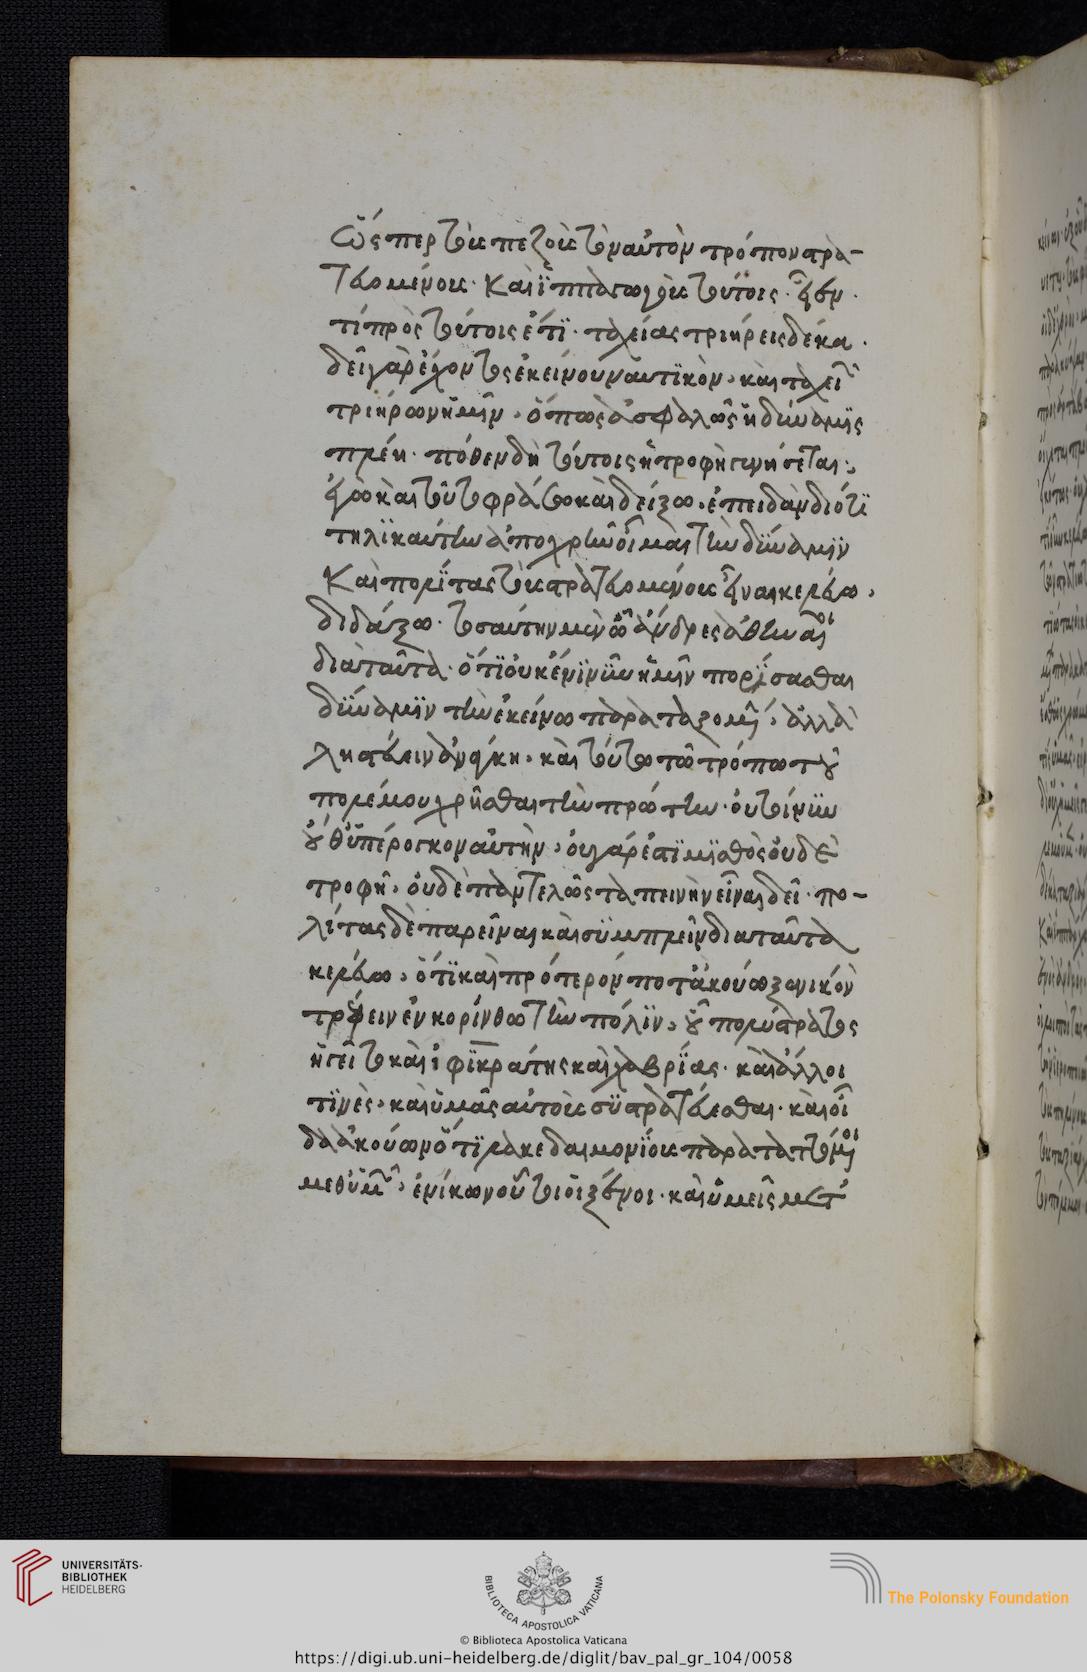 ὥσπερ τοὺς πεζοὺς τὸν αὐτὸν τρόπον στρα-
τευομένους· καὶ ἱππαγωγοὺς τούτοις· εἶεν·
τί πρὸς τούτοις ἔτι· ταχείας τριήρεις δέκα·
δεῖ γὰρ ἔχοντος ἐκείνου ναυτικὸν, καὶ ταχειῶν
τριήρων ἡμῖν, ὅπως ἀσφαλῶς ἡ δύναμις
πλέῃ· πόθεν δὴ τούτοις ἡ τροφὴ γενήσεται;
ἐγὼ καὶ τοῦτο φράσω καὶ δείξω, ἐπειδὰν διότι
τηλικαύτην ἀποχρῆν οἶμαι τὴν δύναμιν
καὶ πολίτας τοὺς στρατευομένους εἶναι κελεύω,
διδάξω· τοσαύτην μὲν ὦ ἄνδρες ἀθηναῖοι
διὰ ταῦτα· ὅτι οὐκ ἔνι νῦν ἡμῖν πορίσασθαι
δύναμιν τὴν ἐκείνω παραταξομένην, ἀλλὰ
ληστεύειν ἀνάγκη, καὶ τούτω τῶ τρόπω τοῦ
πολέμου χρῆσθαι τὴν πρώτην· οὐ τοίνυν
οὔθ' ὑπέρογκον αὐτὴν, οὐ γάρ ἐστι μισθὸς οὐδὲ
τροφή, οὐδὲ παντελῶς ταπεινὴν εἶναι δεῖ· πο-
λίτας δὲ παρεῖναι καὶ συμπλεῖν διὰ ταῦτα
κελεύω, ὅτι καὶ πρότερόν ποτ' ἀκούω ξενικὸν
τρέφειν ἐν κορίνθω τὴν πόλιν, οὗ πολύστρατος
ἡγεῖτο καὶ ἰφικράτης καὶ χαβρίας· καὶ ἄλλοι
τινὲς, καὶ ὑμᾶς αὐτοὺς συστρατεύεσθαι· καὶ οἶ
δα ἀκούων ὅτι λακεδαιμονίους παραταττόμενοι
μεθ' ὑμῶν, ἐνίκων οὗτοι οἱ ξένοι· καὶ ὑμεῖς μετ'
UNIVERSITÄTS-
BIBLIOTHEK
HEIDELBERG
BIBLIOTECA APOSTOLICA VATICANA
The Polonsky Foundation
© Biblioteca Apostolica Vaticana
https://digi.ub.uni-heidelberg.de/diglit/bav_pal_gr_104/0058